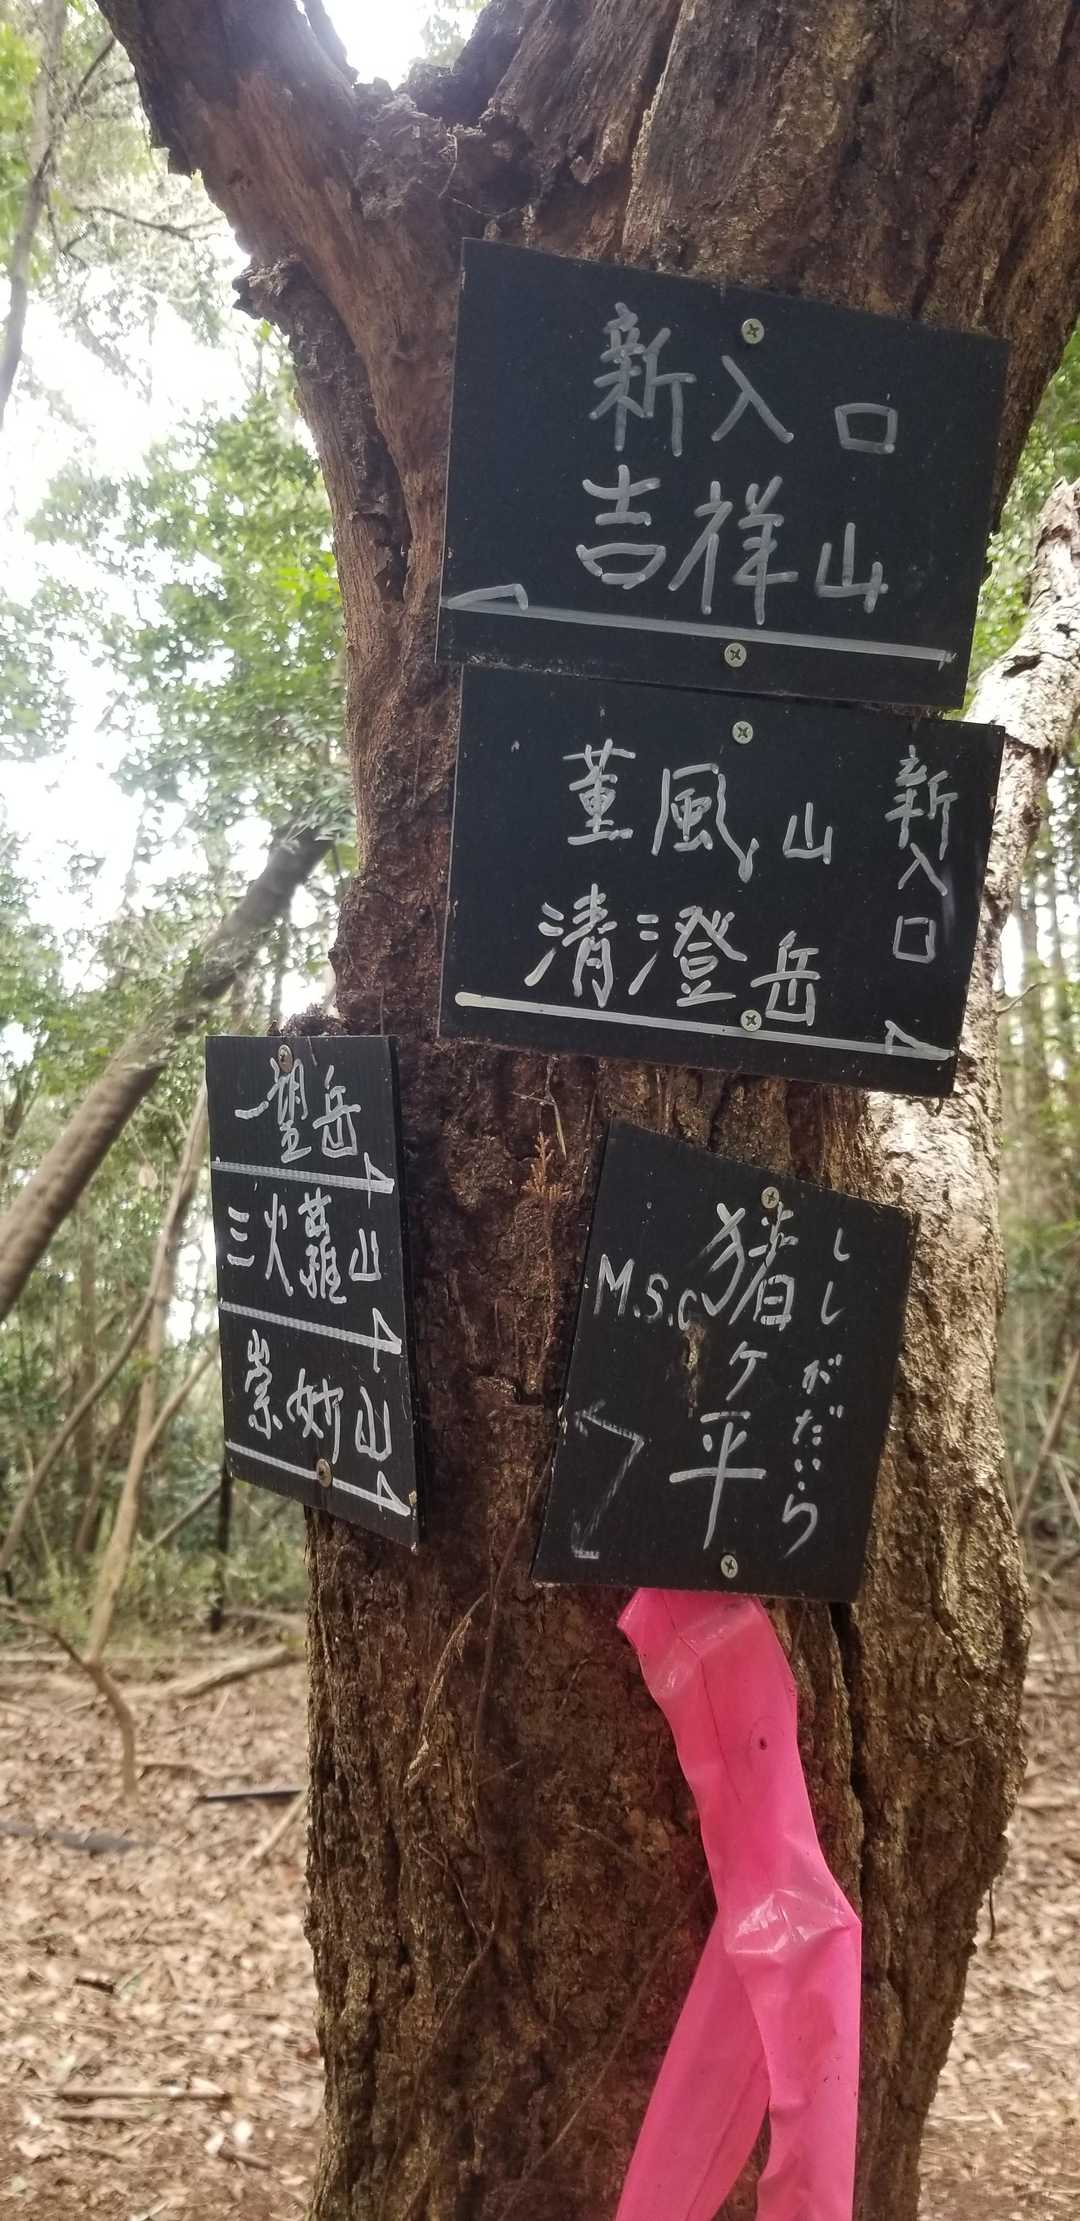 新入口
吉祥山
薫風山
清澄岳
新入口
一望岳
三火蘿山
崇妙山
ししがだいら
猪ケ平
M.S.C